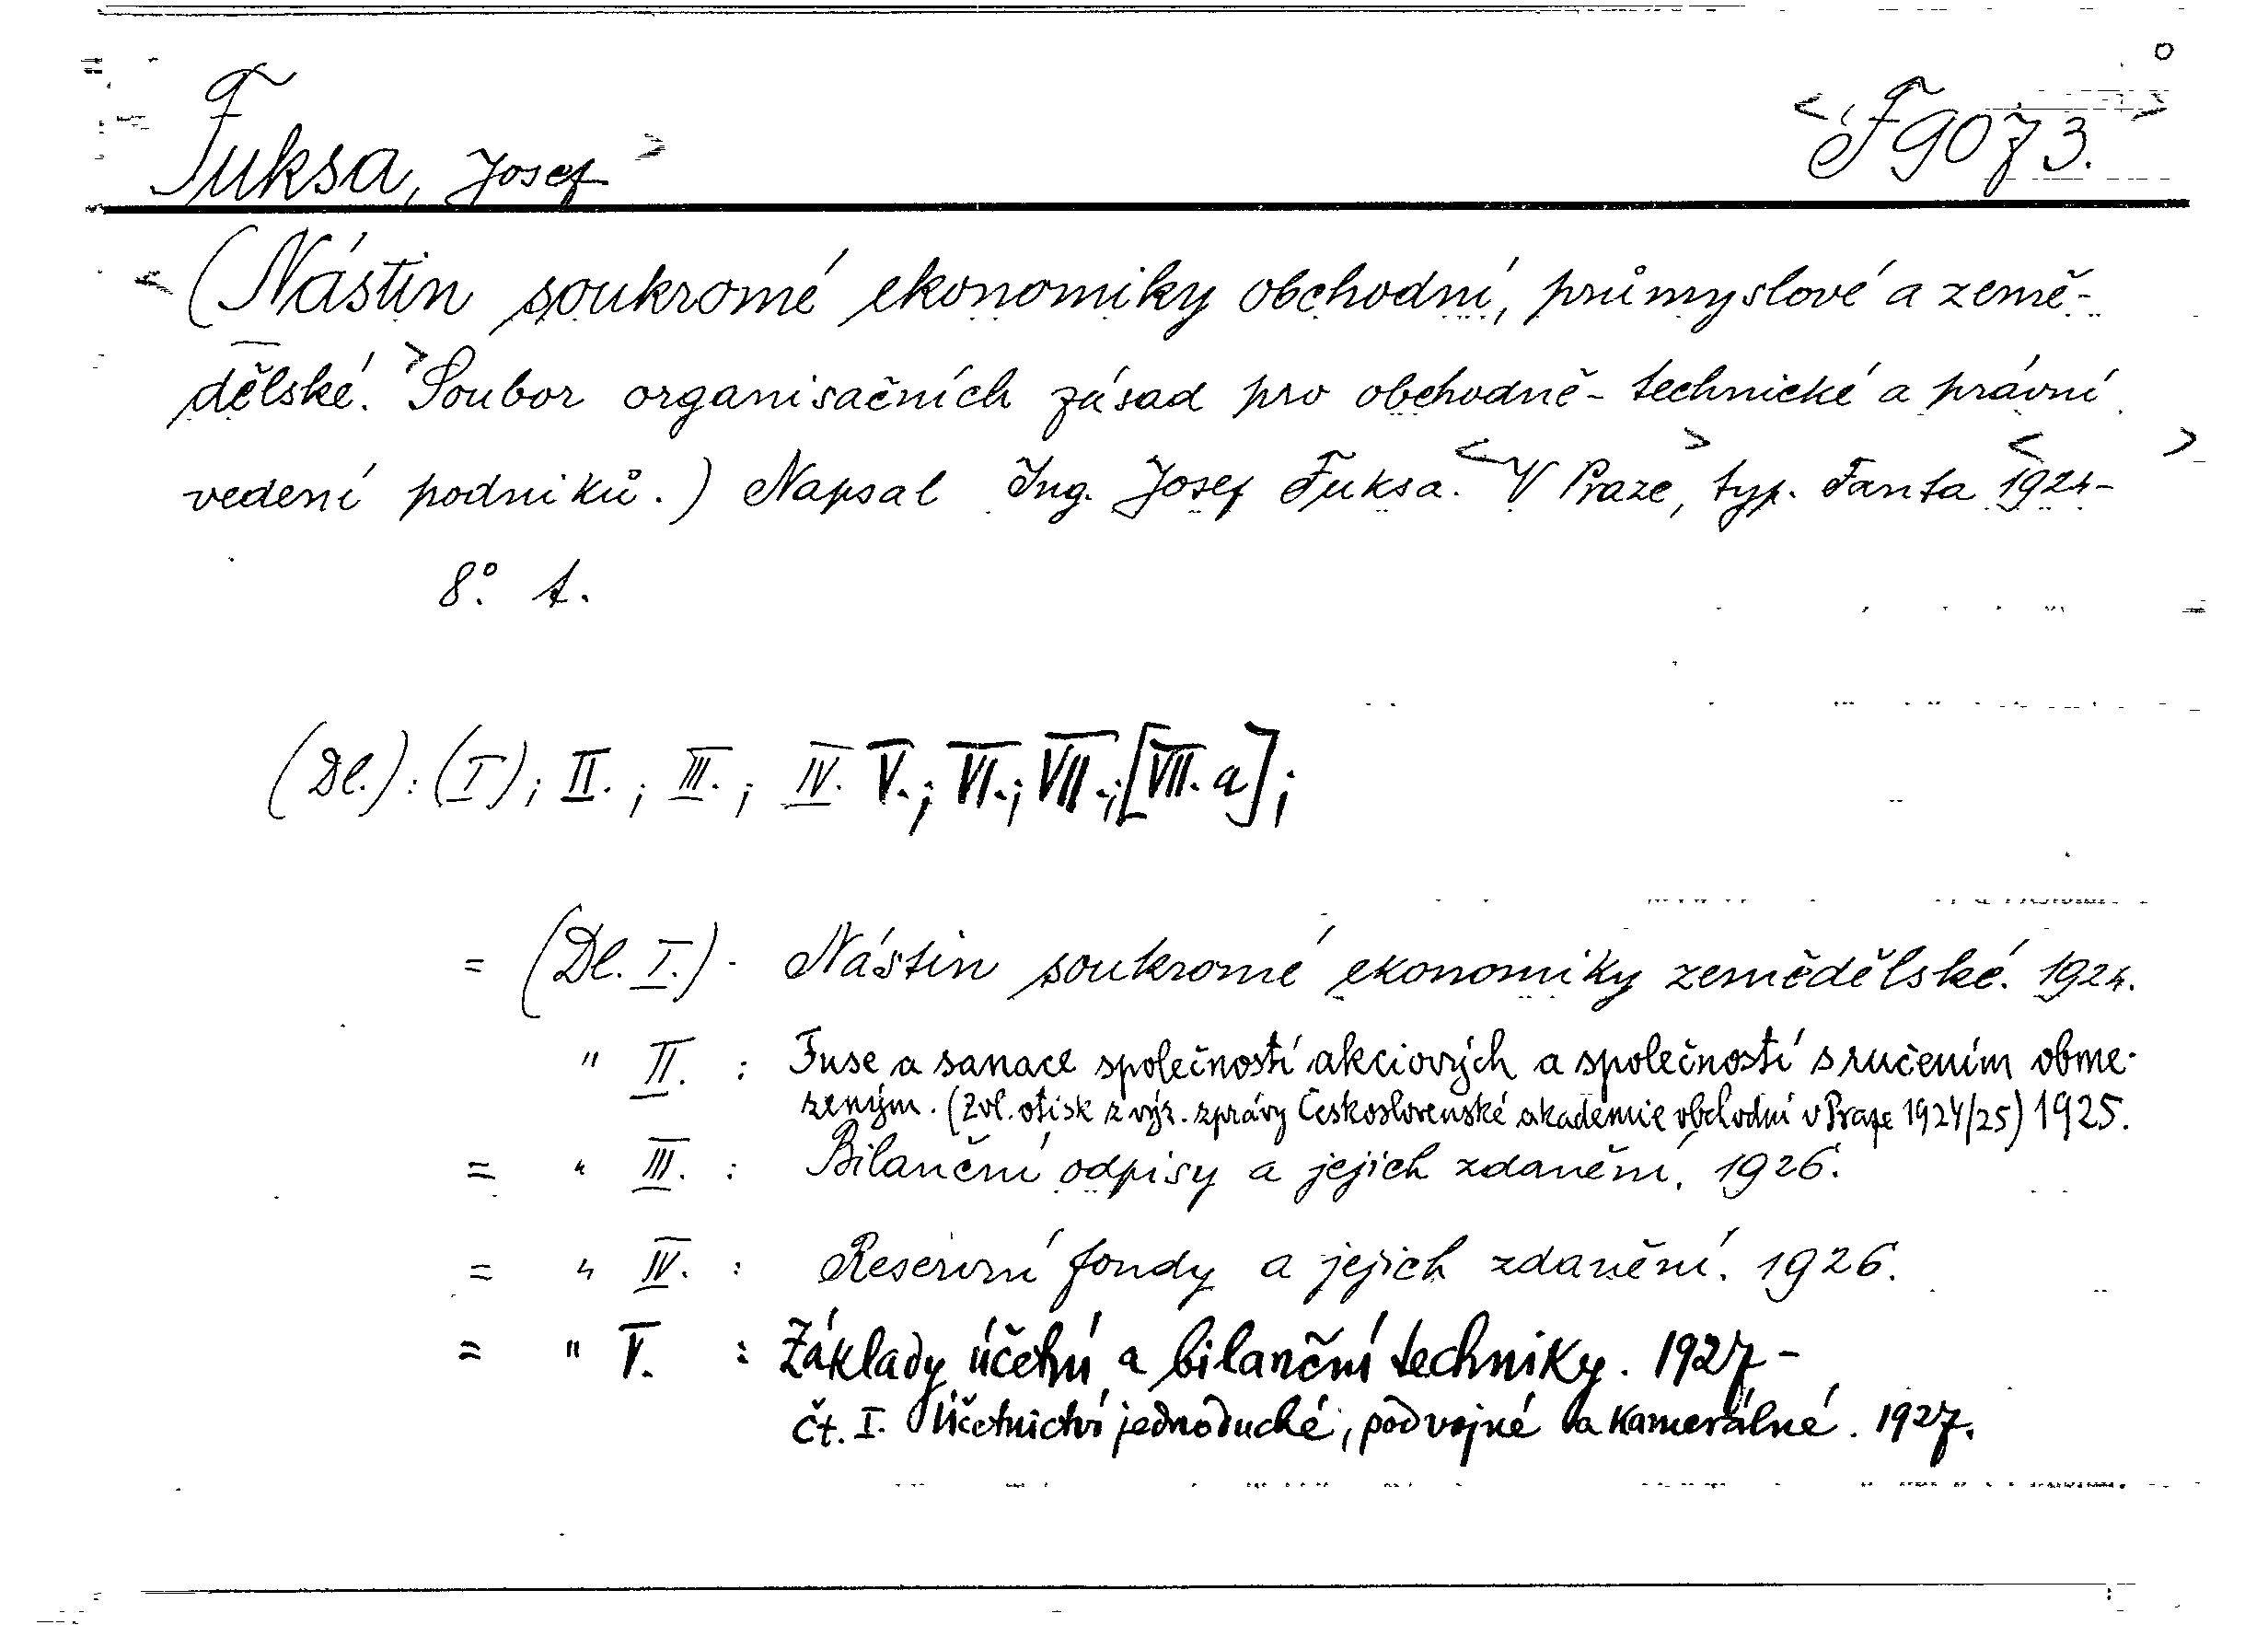 Fuksa, Josef > < F 9073. >
< (Nástin soukromé ekonomiky obchodní, průmyslové a země-
dělské. > Soubor organisačních zásad pro obchodně-technické a právní
vedení podniků.) Napsal Ing. Josef Fuksa. < V Praze, > typ. Fanta < 1924- >
8°. t.
(Dl.): (I); II.; III.; IV. V.; VI.; VII.; [VII. a];
= (Dl. I.) - Nástin soukromé ekonomiky zemědělské. 1924.
" II. : Fuse a sanace společností akciových a společností s ručením obme-
zeným. (Zvl. otisk z výr. zprávy Československé akademie obchodní v Praze 1924/25) 1925.
= " III. : Bilanční odpisy a jejich zdanění. 1926.
= " IV. : Reservní fondy a jejich zdanění. 1926.
= " V. : Základy účetní a bilanční techniky. 1927 -
Čt. I. Účetnictví jednoduché, podvojné a kamerálné. 1927.